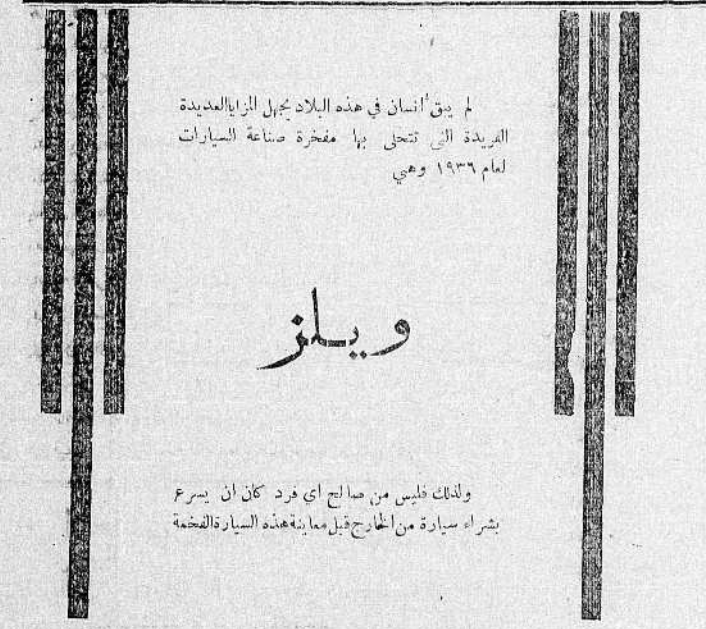 لم يبق انسان في هذه البلاد يجهل المزايا العديدة
الفريدة التي تتحلى بها مفخرة صناعة السيارات
لعام ١٩٣٦ وهي
ويلز
ولذلك فليس من صالح اي فرد كان ان يسرع
بشراء سيارة من الخارج قبل معاينة هذه السيارة الفخمة